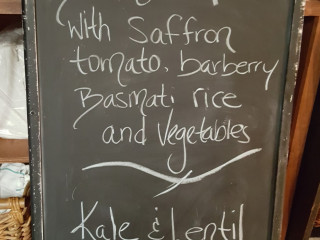 with Saffron
tomato, barberry
Basmati rice
and Vegetables
Kale & Lentil